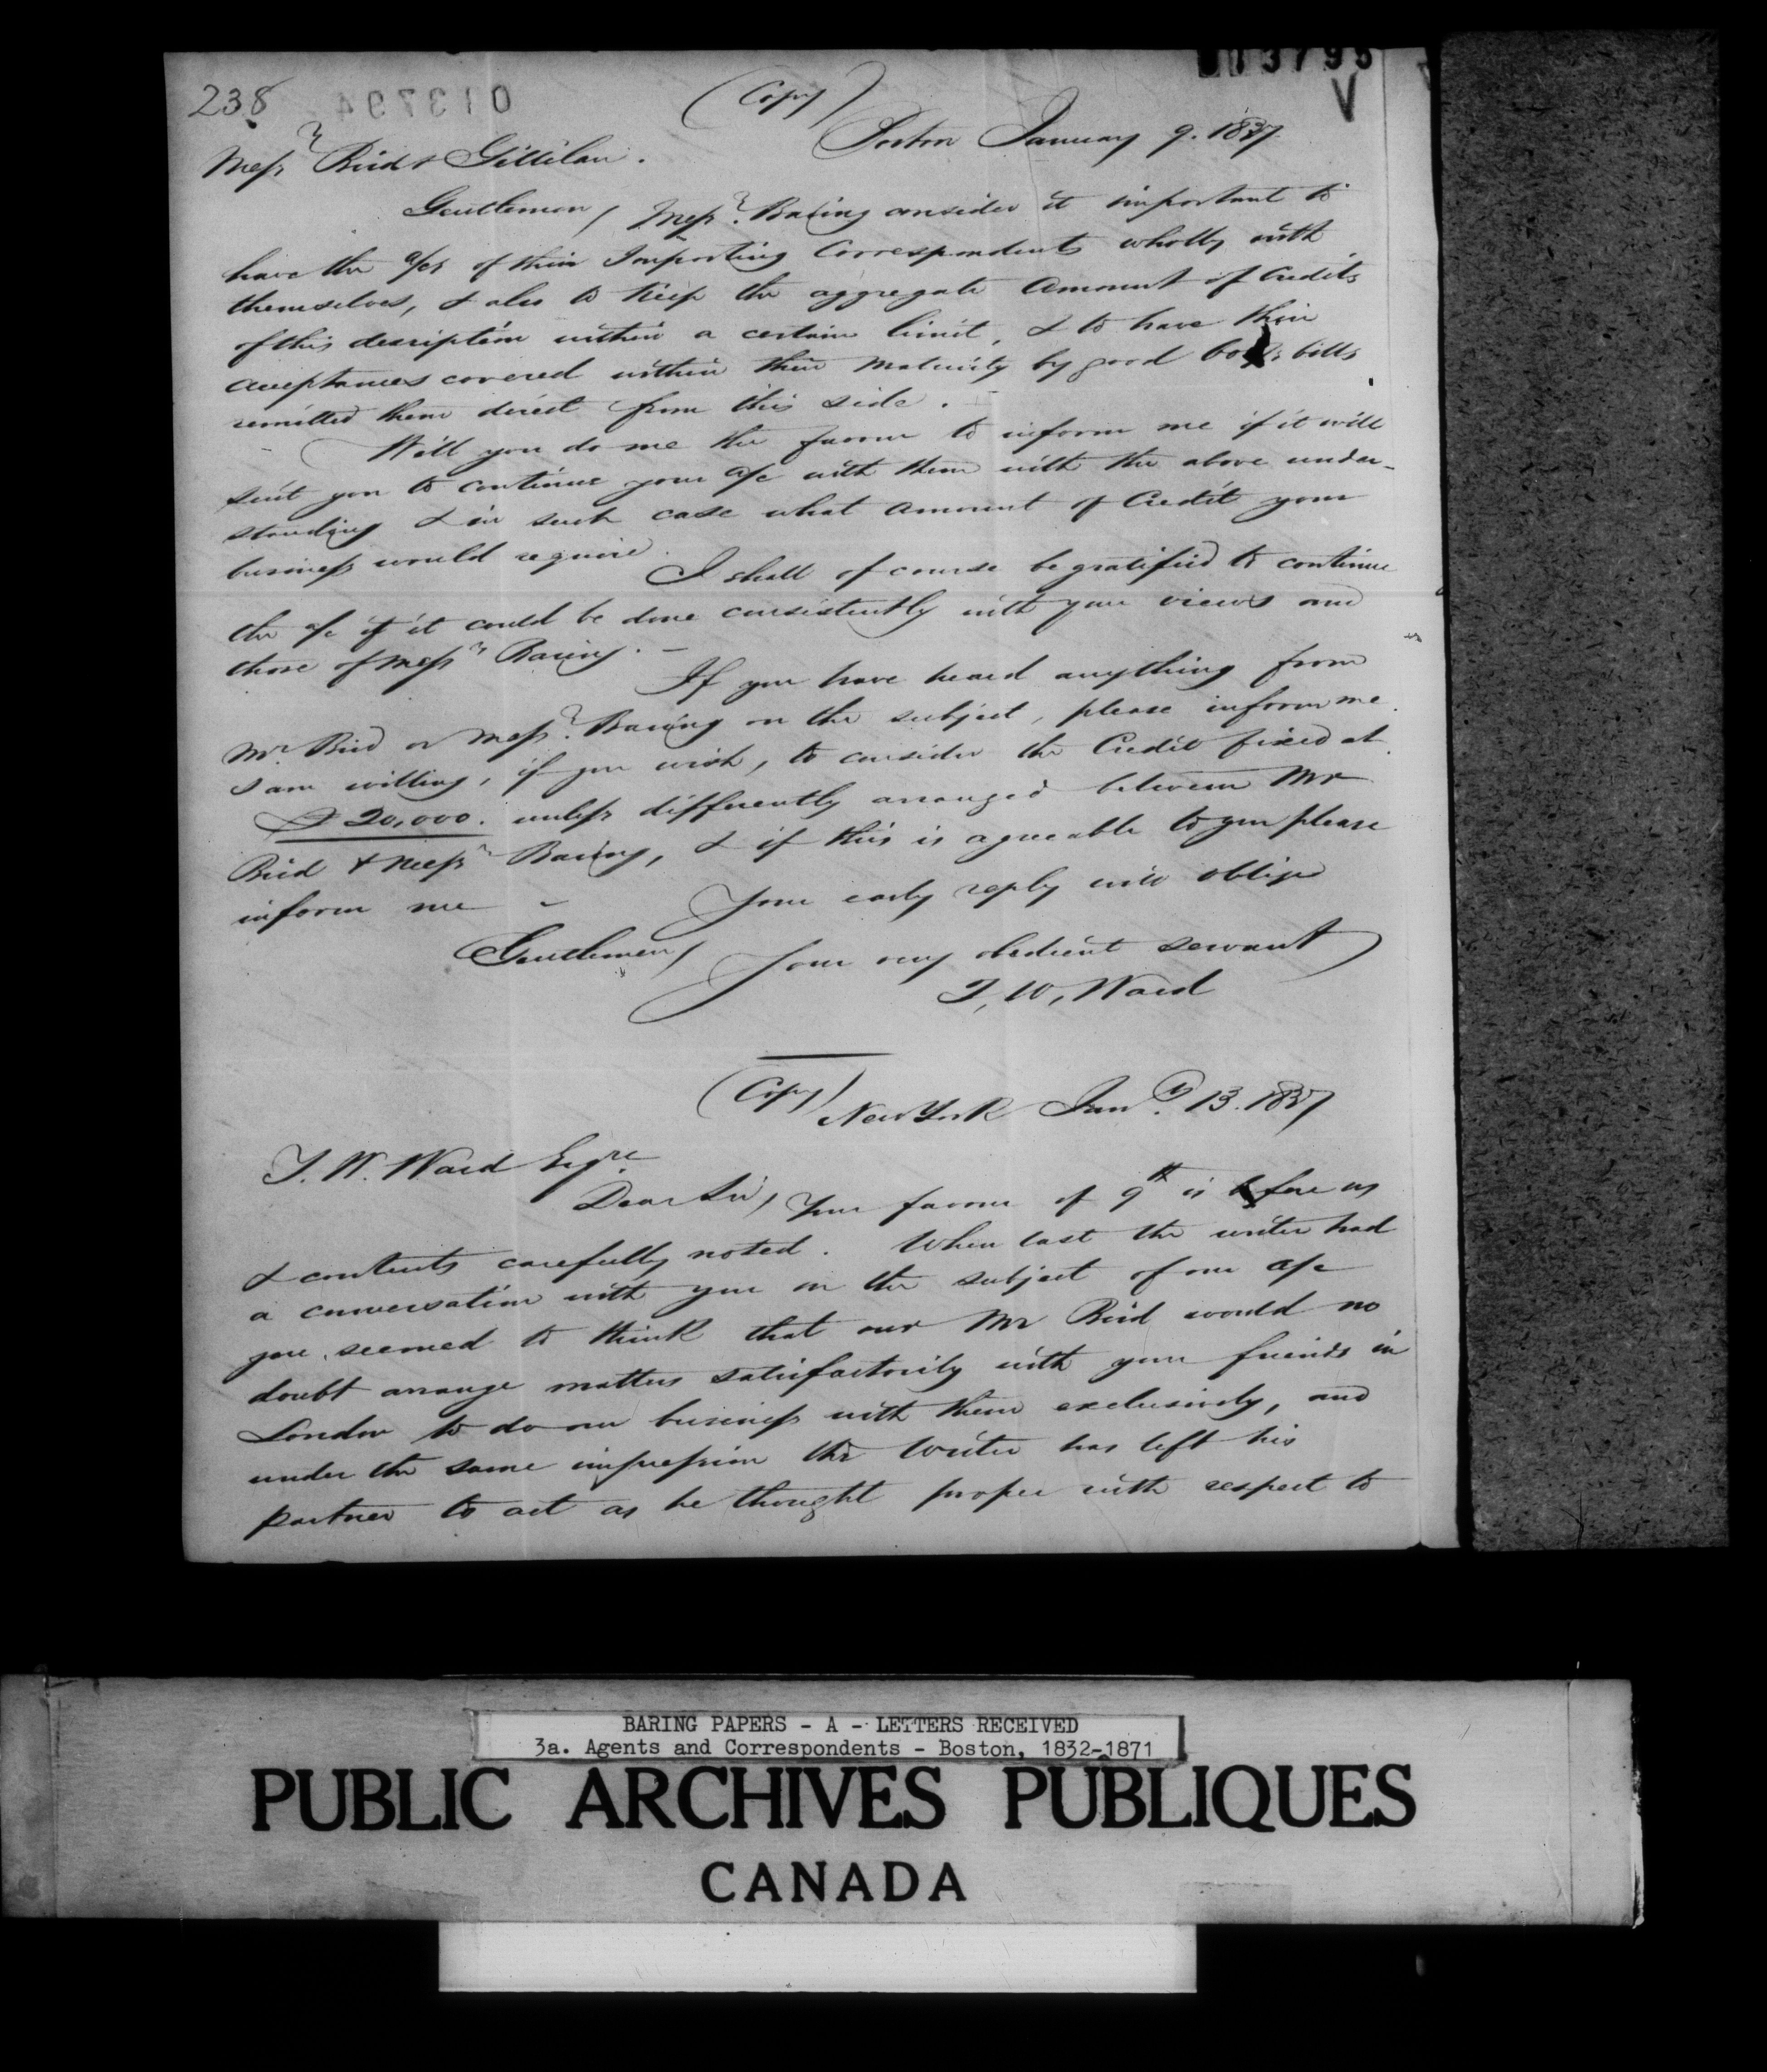 238
013794
(Copy)
13795
V
Boston January 9. 1837.
Messrs Bird & Gillilan.
Gentlemen, Messrs. Baring consider it important to
have the a/cs of their Importing Correspondents wholly with
themselves, & also to keep the aggregate amount of Credits
of this description within a certain limit, & to have their
acceptances covered within their maturity by good bills
remitted them direct from this side.
Will you do me the favour to inform me if it will
suit you to continue your a/c with them with the above under-
standing & in such case what amount of Credit your
business would require.
I shall of course be gratified to continue
the a/c if it could be done consistently with your views and
those of Messrs Baring. -
If you have heard anything from
Mr. Bird or Messrs. Baring on the subject, please inform me.
I am willing, if you wish, to consider the Credit fixed at
£ 20,000. unless differently arranged between Mr
Bird & Messrs Baring, & if this is agreeable to you please
inform me -
Your early reply will oblige
Gentlemen,
Your very obedient servant
T. W. Ward
(Copy)
New York Jany. 13. 1837
T. W. Ward Esqre.
Dear Sir, Your favour of 9th is before us
& contents carefully noted. When last the writer had
a conversation with you on the subject of our a/c
you seemed to think that our Mr Bird would no
doubt arrange matters satisfactorily with your friends in
London to do our business with them exclusively, and
under the same impression the writer has left his
partner to act as he thought proper with respect to
BARING PAPERS - A - LETTERS RECEIVED
3a. Agents and Correspondents - Boston, 1832-1871
PUBLIC ARCHIVES PUBLIQUES
CANADA